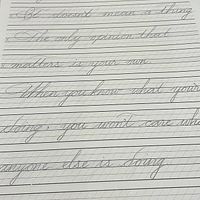 It doesn't mean a thing
The only opinion that
matters is your own
When you know what your
doing, you won't care wha
anyone else is doing